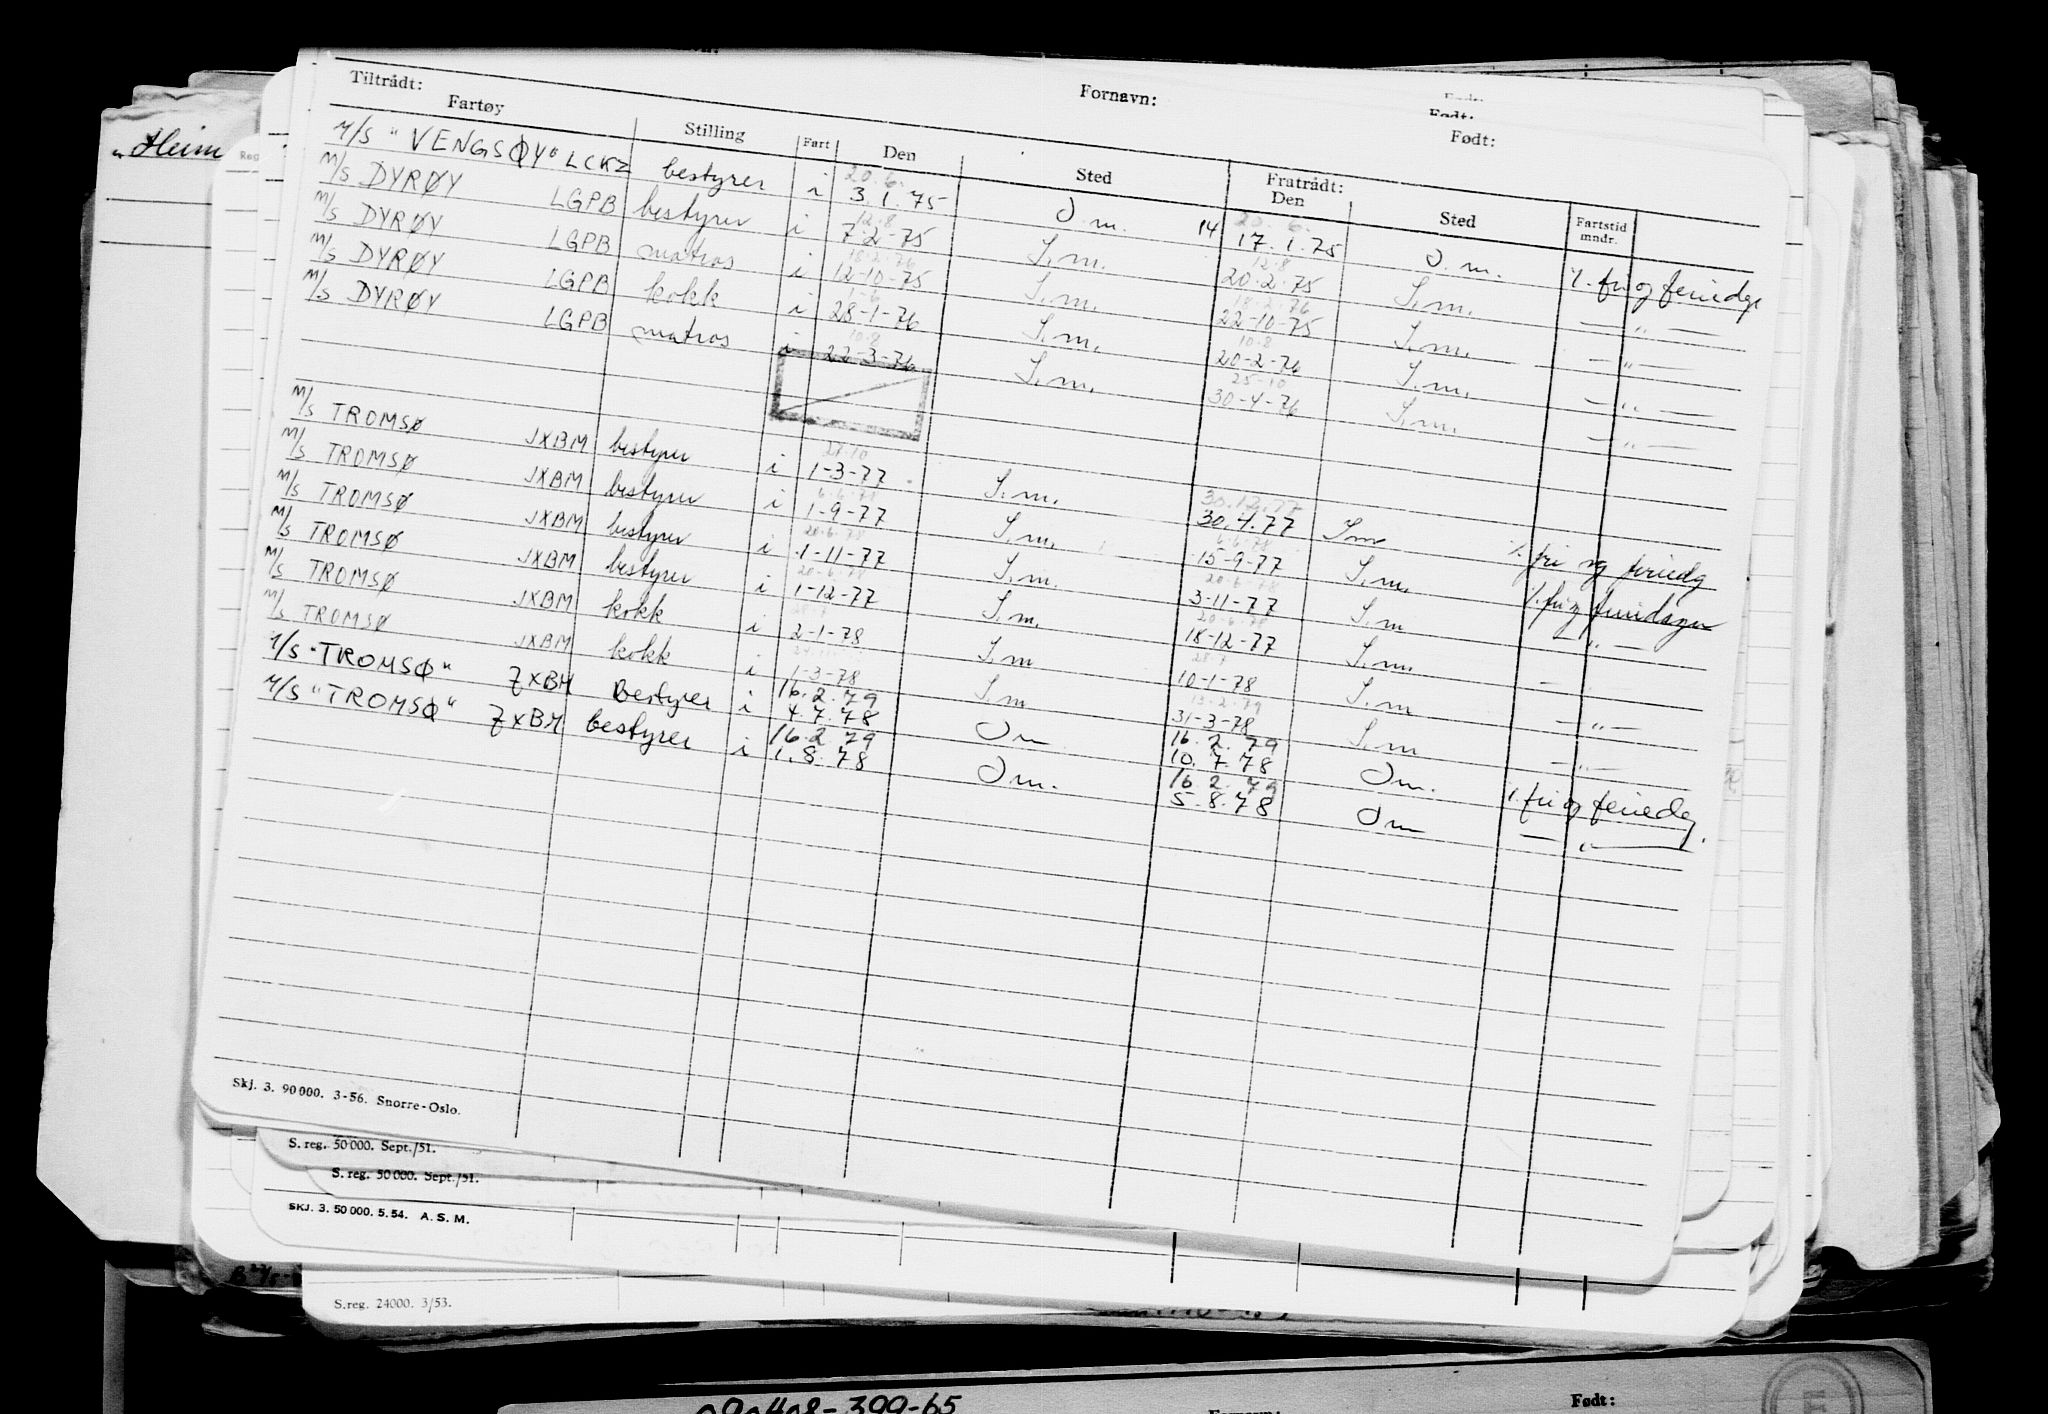 Tiltrådt: Fornavn: Født:
Fartøy Stilling Fart Den Sted Fratrådt: Den Sted Fartstid mndr.
M/S "VENGSØY" LCKZ bestyrer i 20.6. 3.1.75 D.m. 14 20.6. 17.1.75 D.m. /. fri og feriedge
M/S DYRØY LGPB bestyrer i 12.8 7.2-75 S.m. 12.8 20.2.75 S.m. — " —
M/S DYRØY LGPB matros i 18.2.76 12-10-75 S.m. 18.2.76 22-10-75 S.m. — " —
M/S DYRØY LGPB kokk i 1-6 28-1-76 S.m. 10.8 20-2-76 S.m. — " —
M/S DYRØY LGPB matros i 10.8 22-3-76 S.m. 25-10 30-4-76 S.m. — " —
M/S TROMSØ JXBM bestyrer i 28-10 1-3-77 S.m. 30.12.77 30.4.77 S.m /. fri og feriedg
M/S TROMSØ JXBM bestyrer i 6.6.78 1-9-77 S.m. 6.6.78 15-9-77 S.m. /. fri og feriedager
M/S TROMSØ JXBM bestyrer i 20.6.78 1-11-77 S.m. 20-6-78 3-11-77 S.m — " —
M/S TROMSØ JXBM bestyrer i 20-6-78 1-12-77 S.m. 20-6-78 18-12-77 S.m. — " —
M/S TROMSØ JXBM kokk i 28-7 2-1-78 S.m 28-7 10-1-78 S.m — " —
M/S TROMSØ JXBM kokk i 1-3-78 S.m 13-2-79 31-3-78 S.m — " —
M/S "TROMSØ" JXBM Bestyrer i 16.2.79 4.7.78 Dm 16.2.79 10.7.78 Dm. /. fri og feriedg.
M/S "TROMSØ" JXBM bestyrer i 16.2.79 1.8.78 D.m. 16.2.79 5.8.78 Dm — " —
Skj. 3. 90000. 3-56. Snorre-Oslo.
S. reg. 50000. Sept./51.
S. reg. 50000. Sept./51.
SKJ. 3. 50000. 5.54. A. S. M.
S.reg. 24000. 3/53.
"Heim
Født:
Født: